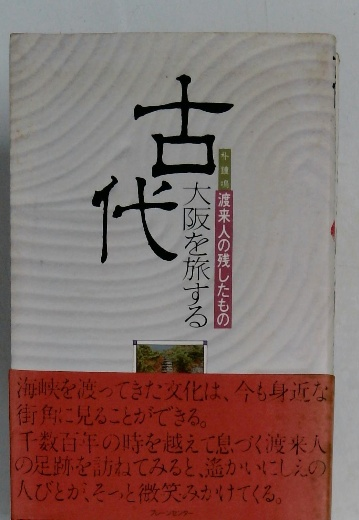 古代
大阪を旅する
渡来人の残したもの
海峡を渡ってきた文化は、今も身近な
街角に見ることができる。
千数百年の時を越えて息づく渡来人
の足跡を訪ねてみると、遙かいにしえの
人びとが、そっと微笑みかけてくる。
ブレーンセンター